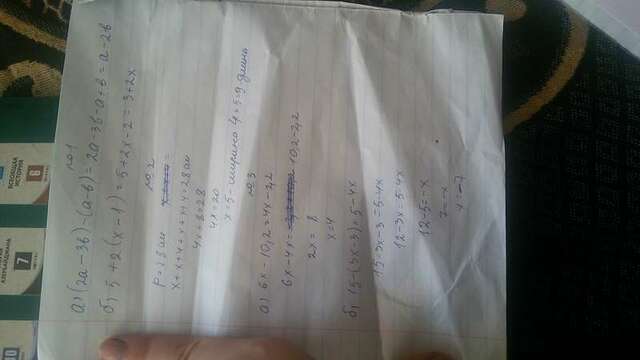 30
АЗЕРБАЙДЖАНА
7
ВСЕОБЩАЯ
ИСТОРИЯ
6
№1
а) (2a-3b)-(a-b)=2a-3b-a+b=a-2b
б) 5+2(x-1)=5+2x-2=3+2x
№2
P=28 см
x+x+4+x+x+4=28 см
4x+8=28
4x=20
x=5-ширина 4+5=9 длина
№3
а) 6x-10,2=4x-2,2
6x-4x= 10,2-2,2
2x= 8
x=4
б) 15-(3x-3)=5-4x
15-3x-3=5-4x
12-3x=5-4x
12-5=-x
7=-x
x=-7